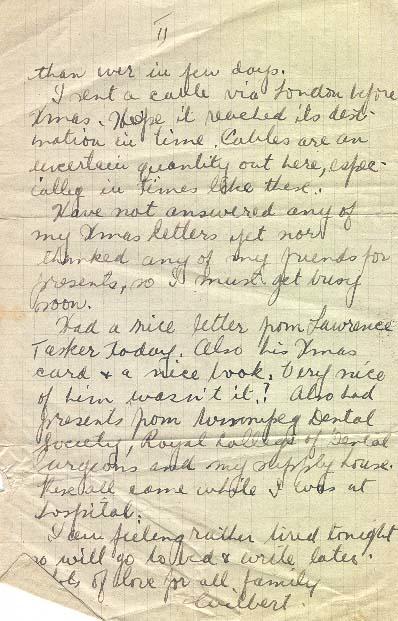 II
than ever in few days.
I sent a cable via London before
Xmas. Hope it reached its dest-
ination in time. Cables are an
uncertain quantity out here, espec-
ially in times like these.
Have not answered any of
my Xmas letters yet nor
thanked any of my friends for
presents, so I must get busy
soon.
Had a nice letter from Lawrence
Tasker today. Also his Xmas
card & a nice book. Very nice
of him wasn't it.! Also had
presents from Winnipeg Dental
Society, Royal College of Dental
Surgeons and my supply house.
These all came while I was at
hospital.
I am feeling rather tired tonight
so will go to bed & write later.
Lots of love for all family
Wilbert.